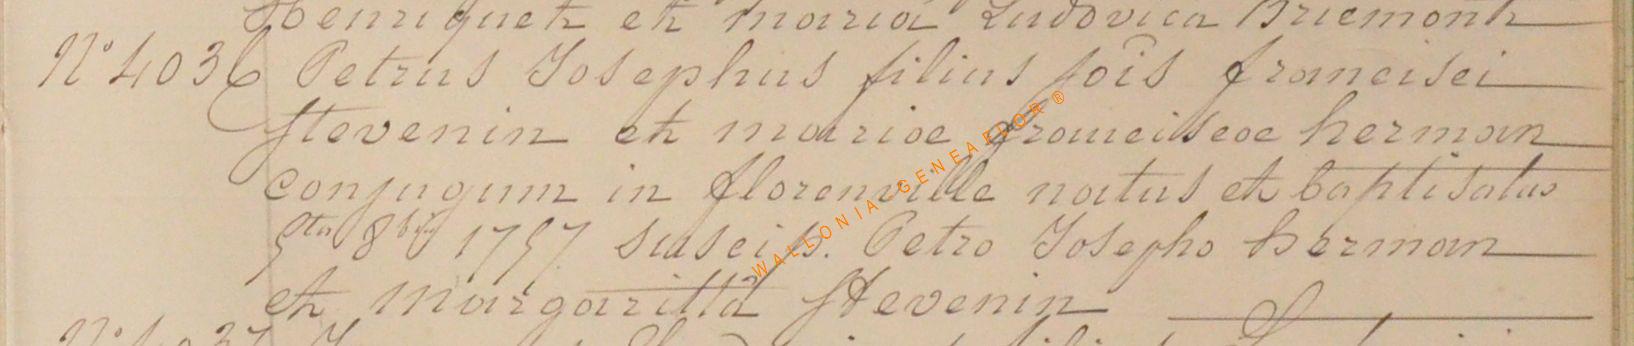 Henriquet et maria Ludovica Briemont
N° 4036 Petrus Josephus filius joïs francisci
stevenin et mariae franciscae herman
conjugum in florenville natus et baptisatus
5ta 8bris 1757 suscis. Petro Josepho herman
et margaritta Stevenin
N° 4037
WALLONIA-GENEAFLOR®